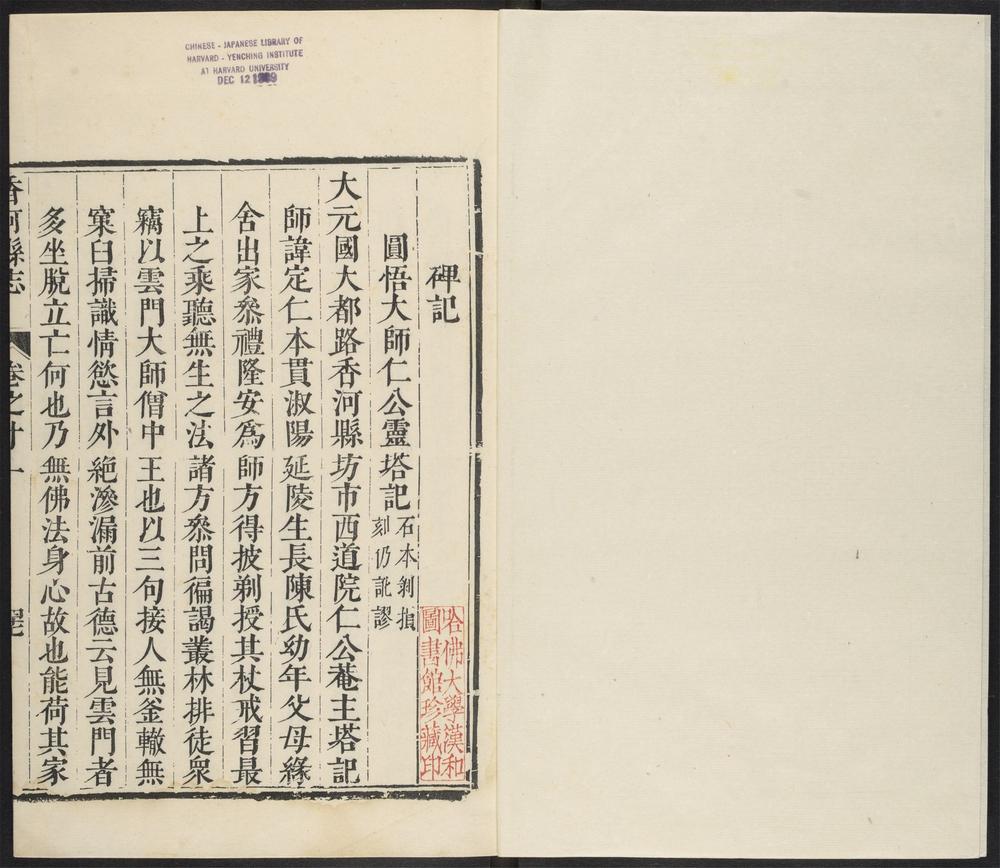 CHINESE - JAPANESE LIBRARY OF
HARVARD - YENCHING INSTITUTE
AT HARVARD UNIVERSITY
DEC 12
碑記
圓悟大師仁公靈塔記石本剝損刻仍訛謬
大元國大都路香河縣坊市西道院仁公菴主塔記
師諱定仁本貫淑陽延陵生長陳氏幼年父母緣
舍出家叅禮隆安爲師方得披剃授其杖戒習最
上之乘聽無生之法諸方叅問徧謁叢林排徒衆
竊以雲門大師僧中王也以三句接人無釜轍無
窠臼掃識情慾言外絶滲漏前古德云見雲門者
多坐脫立亡何也乃無佛法身心故也能荷其家
香河縣志
卷之十一
哈佛大學漢和
圖書館珍藏印